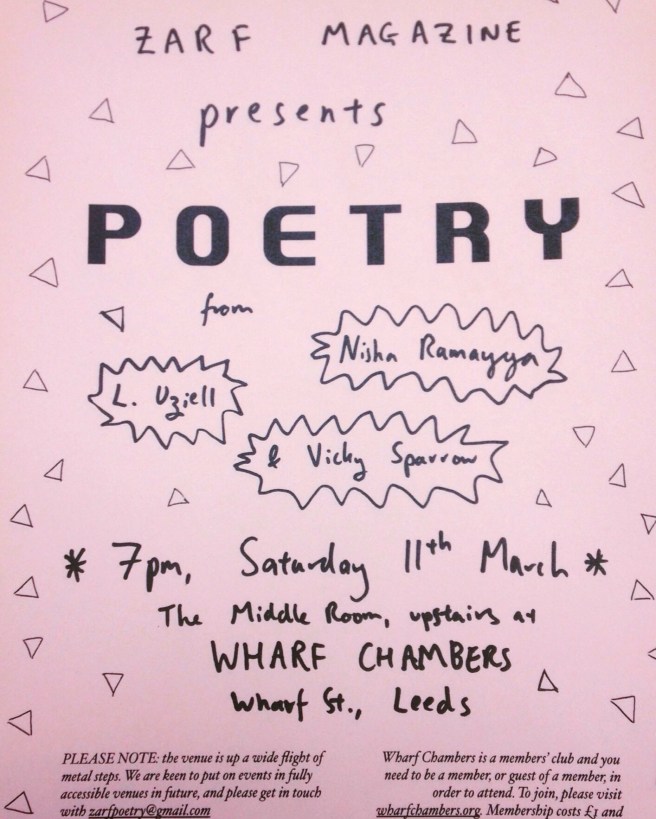 ZARF MAGAZINE
presents
POETRY
from
Nisha Ramayya
L. Uziell
& Vicky Sparrow
* 7pm, Saturday 11th March *
The Middle Room, upstairs at
WHARF CHAMBERS
Wharf St., Leeds
PLEASE NOTE: the venue is up a wide flight of
metal steps. We are keen to put on events in fully
accessible venues in future, and please get in touch
with zarfpoetry@gmail.com
Wharf Chambers is a members' club and you
need to be a member, or guest of a member, in
order to attend. To join, please visit
wharfchambers.org. Membership costs £1 and